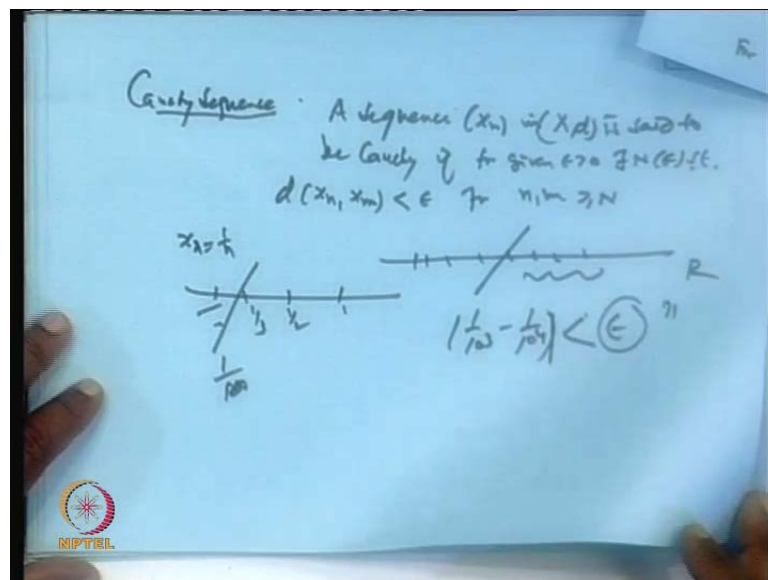 Cauchy Sequence . A sequence (xn) in (X,d) is said to
be Cauchy if for given ε>0 ∃ N(ε) s.t.
d(xn, xm) < ε for n,m ≥ N
xn = 1/n
R
1/3 1/2 1
|1/10³ - 1/10⁴| < ε
NPTEL